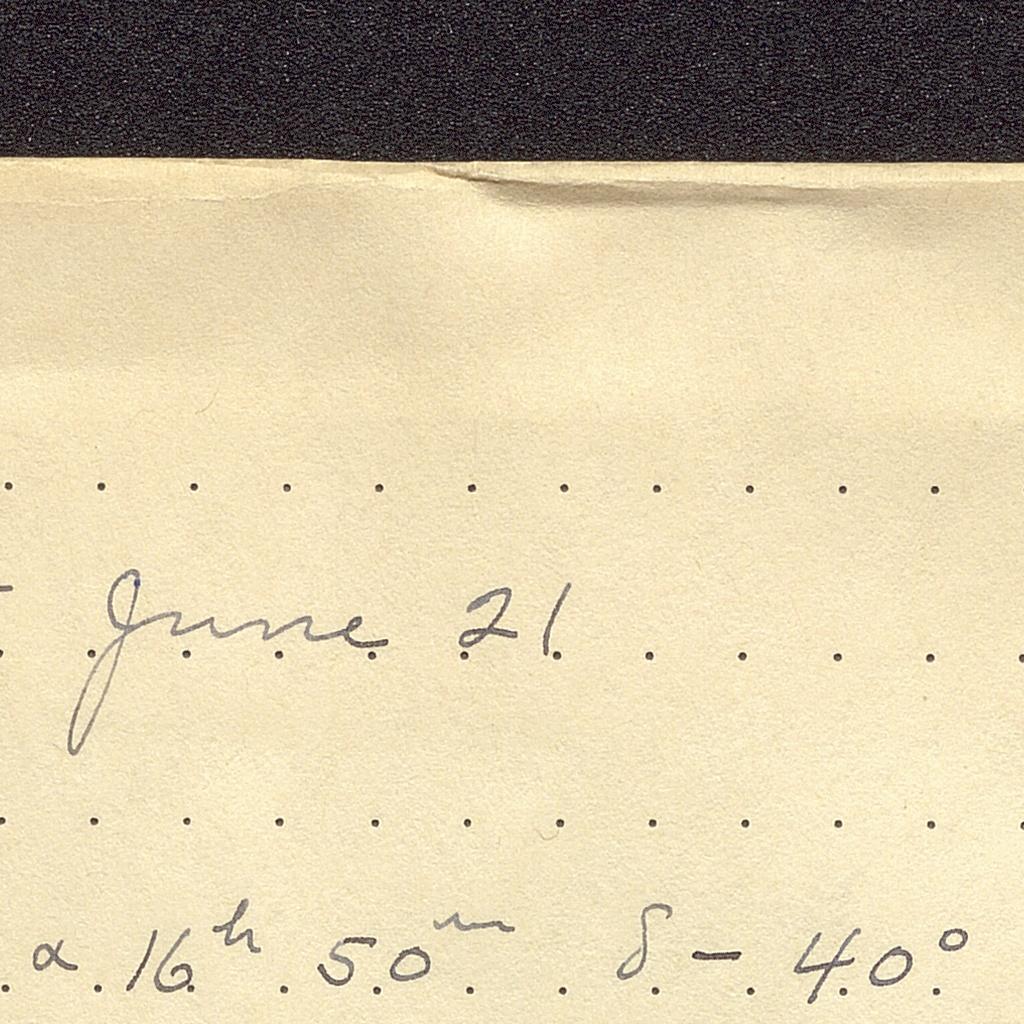 June 21
α 16ʰ 50ᵐ δ - 40°